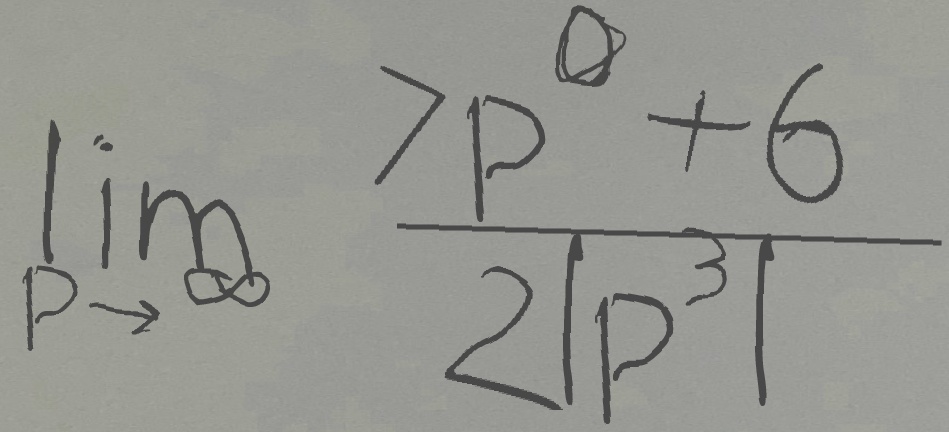 lim p→∞ (7p^0 + 6) / (2|p^3|)